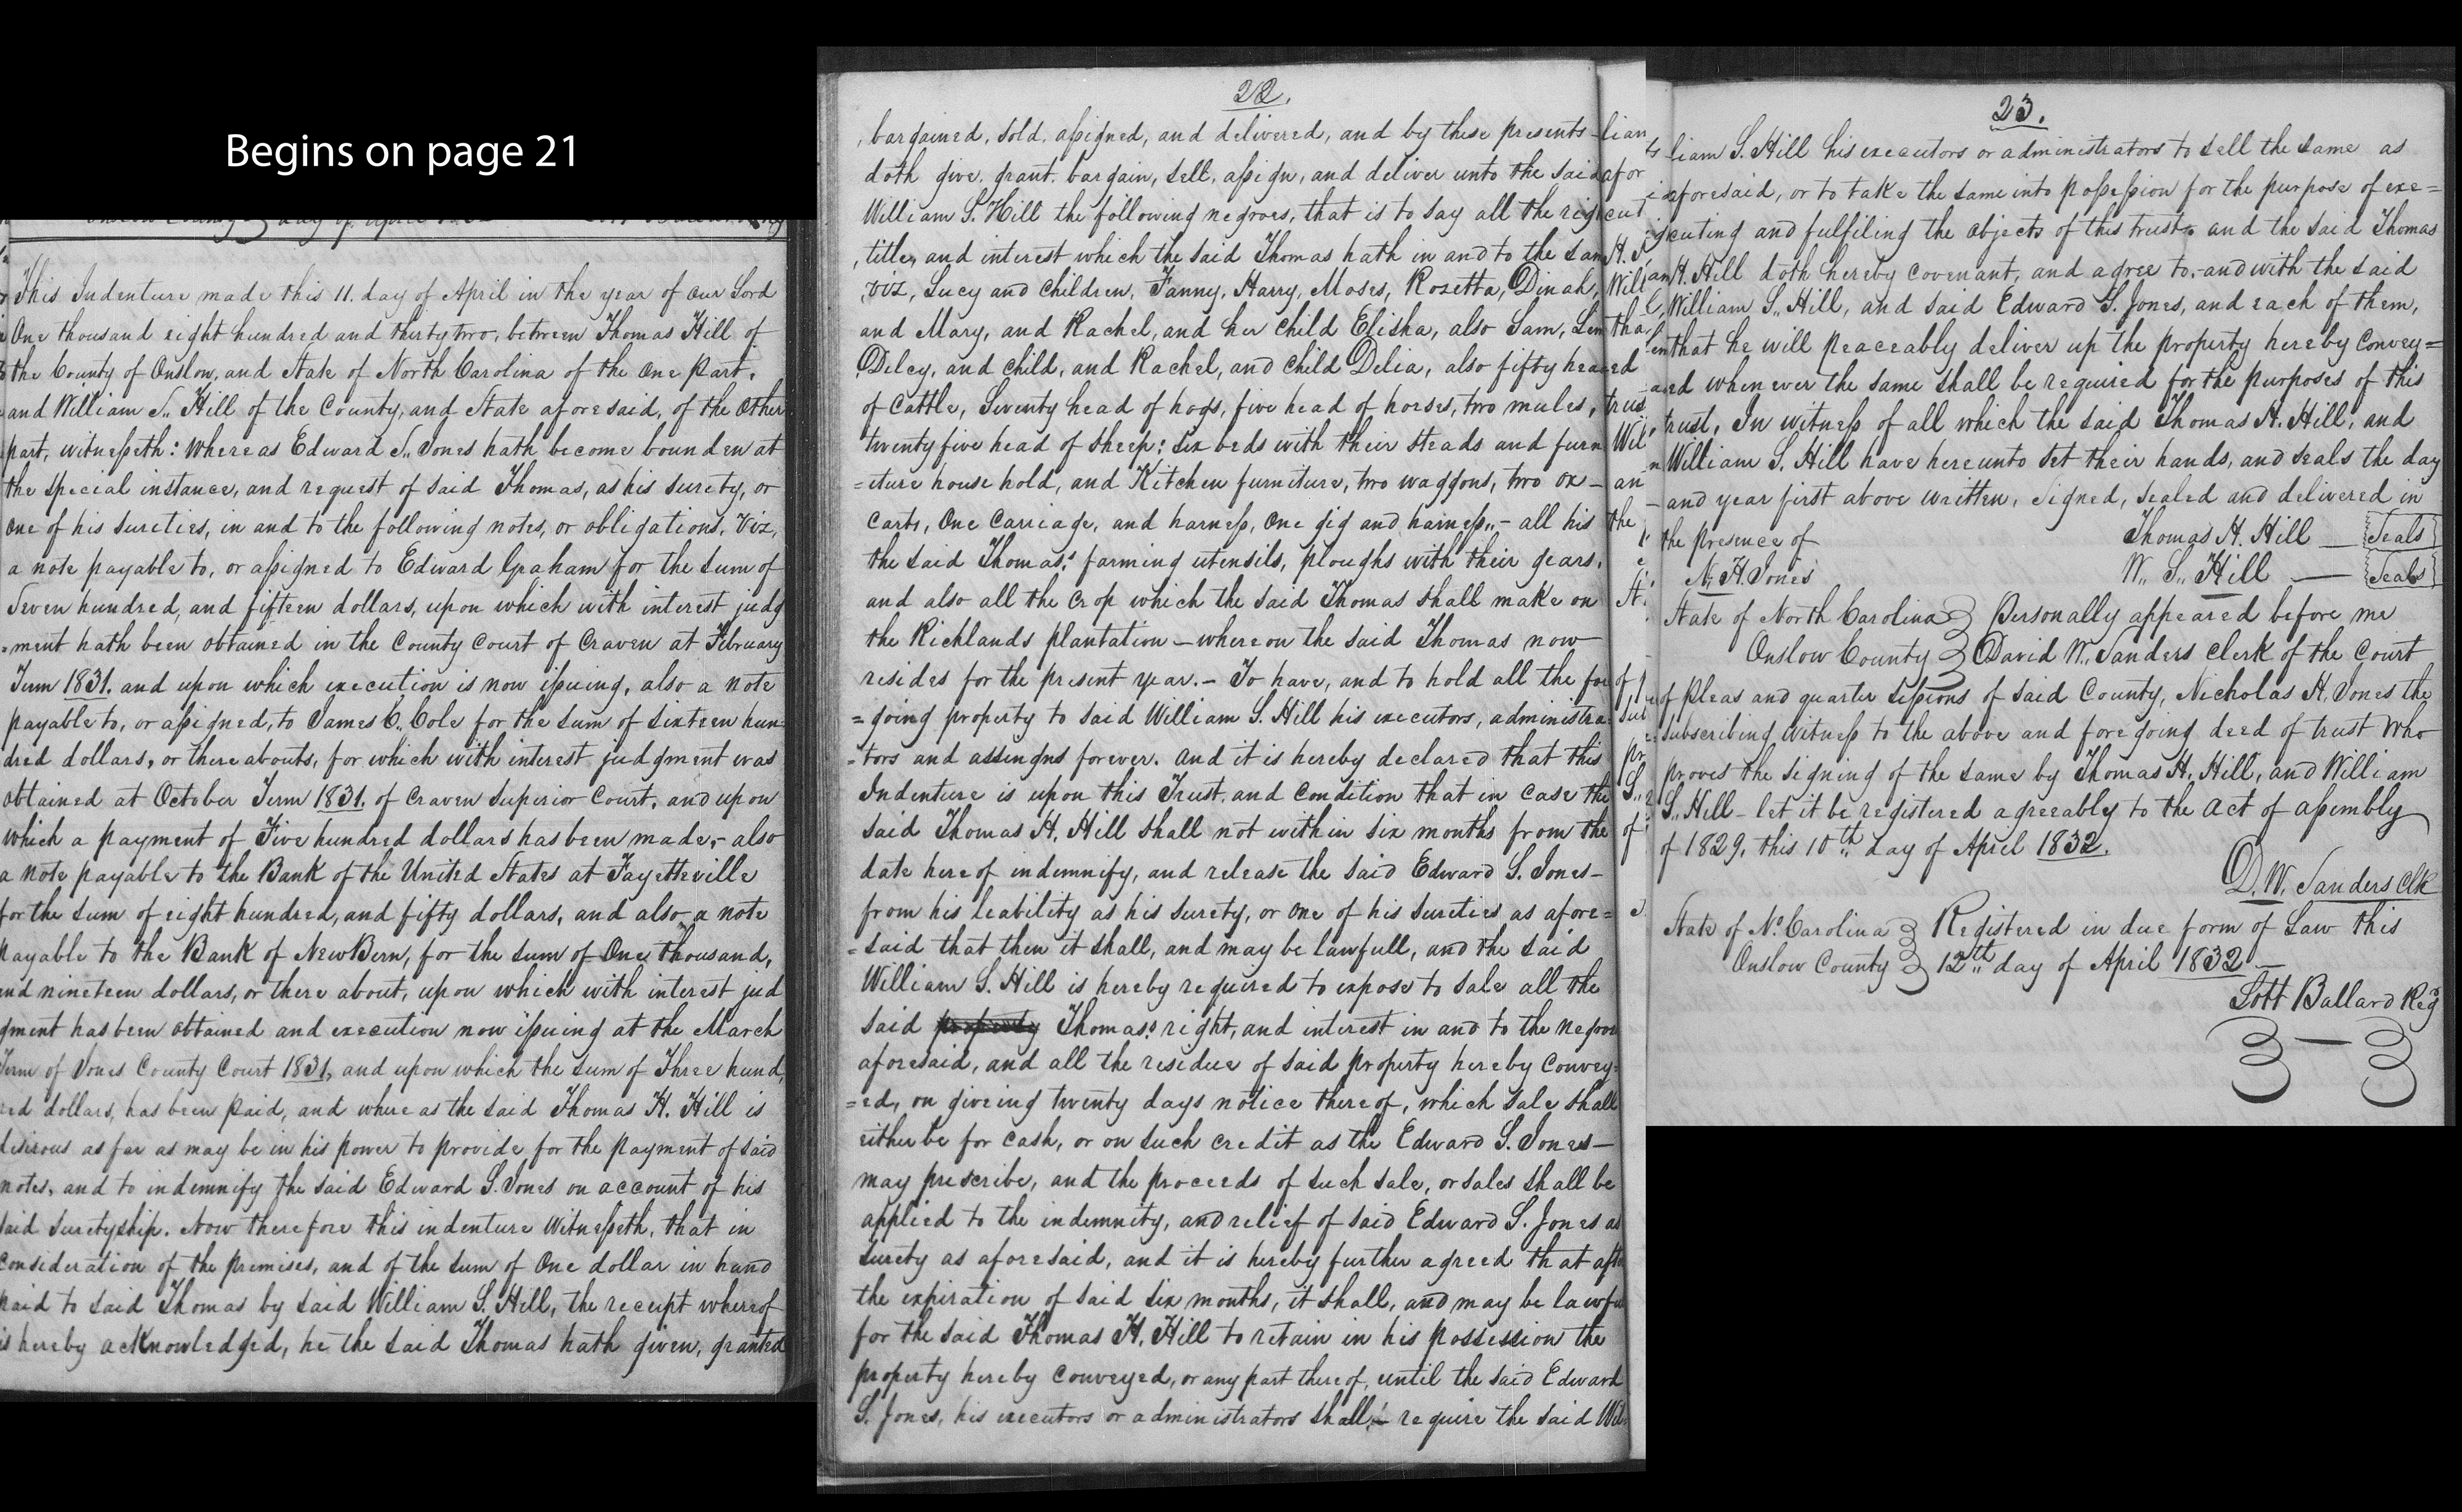 Begins on page 21
This Indenture made this 11. day of April in the year of our Lord
One thousand eight hundred and thirty two, between Thomas Hill of
the County of Onslow, and State of North Carolina of the One Part,
and William S,, Hill of the County, and State aforesaid, of the other
part, witnesseth: whereas Edward S,, Jones hath become bounden at
the special instance, and request of said Thomas, as his surety, or
one of his sureties, in and to the following notes, or obligations, Viz,
a note payable to, or assigned to Edward Graham for the sum of
Seven hundred, and fifteen dollars, upon which with interest judg
=ment hath been obtained in the County Court of Craven at February
Term 1831. and upon which execution is now issuing, also a note
payable to, or assigned, to James C,, Cole for the sum of sixteen hun=
dred dollars, or there abouts, for which with interest judgment was
obtained at October Term 1831, of Craven Superior Court, and upon
which a payment of Five hundred dollars has been made,- also
a note payable to the Bank of the United States at Fayetteville
for the sum of eight hundred, and fifty dollars, and also a note
payable to the Bank of NewBern, for the sum of One thousand,
and nineteen dollars, or there about, upon which with interest jud
gment has been obtained and execution now issuing at the March
Term of Jones County Court 1831, and upon which the sum of Three hund,
red dollars, has been paid, and whereas the said Thomas H. Hill is
desirous as far as may be in his power to provide for the payment of said
notes, and to indemnify the said Edward S. Jones on account of his
said suretyship. Now therefore this indenture Witnesseth, that in
consideration of the premises, and of the sum of One dollar in hand
paid to said Thomas by said William S. Hill, the receipt whereof
is hereby acknowledged, he the said Thomas hath given, granted
22.
bargained, sold, assigned, and delivered, and by these presents
doth give, grant, bargain, sell, assign, and deliver unto the said
William S. Hill the following negroes, that is to say all the rig
title, and interest which the said Thomas hath in and to the sam
viz, Lucy and children, Fanny, Harry, Moses, Rozetta, Dinah,
and Mary, and Rachel, and her child Elisha, also Sam,
Dilcy, and child, and Rachel, and child Delia, also fifty head
of Cattle, Seventy head of hogs, five head of horses, two mules,
twenty five head of sheep: six beds with their steads and furn
=iture house hold, and Kitchen furniture, two waggons, two ox-
carts, One Carriage, and harness, One gig and harness,,- all his
the said Thomas,' farming utensils, ploughs with their gears,
and also all the crop which the said Thomas shall make on
the Richlands plantation - whereon the said Thomas now
resides for the present year.- To have, and to hold all the for
=going property to said William S. Hill his executors, administra=
=tors and assingns forever. and it is hereby declared that this
Indenture is upon this Trust, and condition that in case the
said Thomas H. Hill shall not within six months from the
date hereof indemnify, and release the said Edward S. Jones-
from his leability as his surety, or one of his sureties as afore=
=said that then it shall, and may be lawfull, and the said
William S. Hill is hereby required to expose to sale all the
said property Thomas's right, and interest in and to the negroes
aforesaid, and all the residue of said property hereby convey=
=ed, on giveing twenty days notice thereof, which sale shall
either be for cash, or on such credit as the Edward S. Jones-
may prescribe, and the proceeds of such sale, or sales shall be
applied to the indemnity, and relief of said Edward S. Jones as
surety as aforesaid, and it is hereby further agreed that after
the expiration of said six months, it shall, and may be lawful
for the said Thomas H. Hill to retain in his possession the
property hereby conveyed, or any part thereof, until the said Edward
S. Jones, his executors or administrators shall,- require the said Wil
23.
liam S. Hill his executors or administrators to sell the same as
aforesaid, or to take the same into possession for the purpose of exe=
cuting and fulfiling the objects of this trust, and the said Thomas
H. Hill doth hereby covenant, and agree to,-and with the said
William S,, Hill, and said Edward S. Jones, and each of them,
that he will peaceably deliver up the property hereby convey=
ed when ever the same shall be required for the purposes of this
trust, In witness of all which the said Thomas H. Hill, and
William S. Hill have here unto set their hands, and seals the day
and year first above written, signed, sealed and delivered in
the presence of Thomas H. Hill — {Seals}
N. H. Jones W,, S,, Hill — {Seals}
State of North Carolina } Personally appeared before me
Onslow County } David W,, Sanders Clerk of the Court
of Pleas and quarter sessions of said County, Nicholas H. Jones the
subscribing witness to the above and foregoing deed of trust who
proves the signing of the same by Thomas H. Hill, and William
S,, Hill - let it be registered agreeably to the act of assembly
of 1829, this 10th,, day of April 1832.
D. W. Sanders Clk
State of No. Carolina } Registered in due form of Law this
Onslow County } 12th,, day of April 1832 -
Lott Ballard Reg